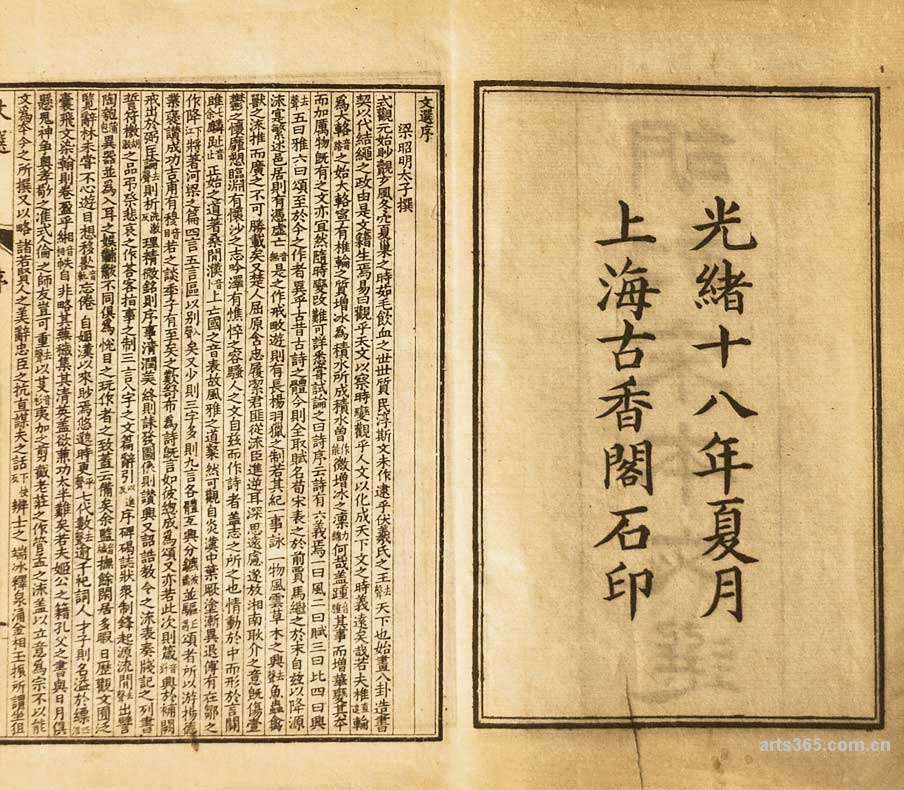 光緒十八年夏月
上海古香閣石印
文選序
梁昭明太子撰
式觀元始眇觀玄風冬穴夏巢之時茹毛飲血之世世質民淳斯文未作逮乎伏羲氏之王去聲天下也始畫八卦造書
契以代結繩之政由是文籍生焉易曰觀乎天文以察時變觀乎人文以化成天下文之時義遠矣哉若夫椎直追輪
為大輅音路之始大輅寧有椎輪之質增冰為積水所成積水曾微增冰之凜何哉蓋踵其事而增華變其本
而加厲物既有之文亦宜然隨時變改難可詳悉嘗試論之曰詩序云詩有六義焉一曰風二曰賦三曰比四曰興
去聲五曰雅六曰頌至於今之作者異乎古昔古詩之體今則全取賦名荀宋表之於前賈馬繼之於末自茲以降源
流寔繁述邑居則有憑虛亡音無是之作戒畋遊則有長楊羽獵之制若其紀一事詠一物風雲草木之興去聲魚蟲禽
獸之流推而廣之不可勝載矣又楚人屈原含忠履潔君匪從流臣進逆耳深思遠慮遂放湘南耿介之意既傷壹
鬱之懷靡愬臨淵有懷沙之志吟澤有憔悴之容騷人之文自茲而作詩者蓋志之所之也情動於中而形於言關
雎麟趾音止正始之道著桑間濮上亡國之音表故風雅之道粲然可觀自炎漢中葉厥塗漸異退傅有在鄒之
作降將著河梁之篇四言五言區以別矣又少則三字多則九言各體互興分鑣並驅頌者所以游揚德
業褒讚成功吉甫有穆若之談季子有至矣之歎舒布為詩既言如彼總成為頌又亦若此次則箴興於補闕
戒出於弼匡論則析理精微銘則序事清潤美終則誄發圖像則讚興又詔誥教令之流表奏牋記之列書
誓符檄之品弔祭悲哀之作荅客指事之制三言八字之文篇辭引序碑碣誌狀衆制鋒起源流間出譬
陶匏異器並為入耳之娛黼黻不同俱為悅目之玩作者之致蓋云備矣余監撫餘閑居多暇日歷觀文囿泛
覽辭林未嘗不心遊目想移晷忘倦自姬漢以來眇焉悠邈時更七代數逾千祀詞人才子則名溢於縹
囊飛文染翰則卷盈乎緗帙自非略其蕪穢集其清英蓋欲兼功太半難矣若夫姬公之籍孔父之書與日月俱
懸鬼神爭奧孝敬之准式人倫之師友豈可重以芟夷加之剪截老莊之作管孟之流蓋以立意為宗不以能
文為本今之所撰又以略諸若賢人之美辭忠臣之抗直謀夫之話辨士之端冰釋泉涌金相玉振所謂坐狙
arts365.com.cn